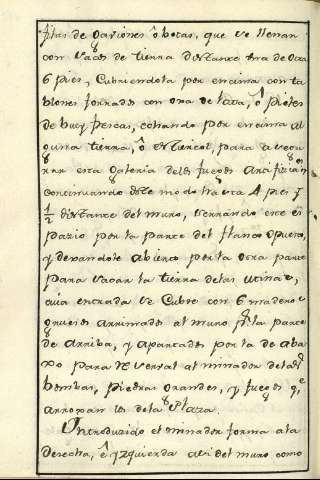 filas de Gaviones ô botas, que se llenan
con sacos de tierra distante una de otra
6 pies, Cubriendola por encima con ta
blones forrados con oxa de lata, ô pieles
de buey frescas, echando por encima al
guna tierra, ô estiercol, para asegu
rar esta galeria delos fuegos Artificia^s
continuando este modo hasta 4 pies y
1/2 distante del muro, cerrando este es
pazio por la parte del flanco opuesto,
y dexandole abierto por la otra parte
para sacar la tierra delas minas,
cuia entrada se Cubre con 6 maderos
gruesos arrimados al muro p^r la parte
de arriba, y apartados por la de aba
xo para reservar al minador delas
bombas, piedras grandes, y fuegos q^e
arroxan los dela Plaza.
Introduzido el minador forma ala
derecha, ê yzquierda asi del muro como